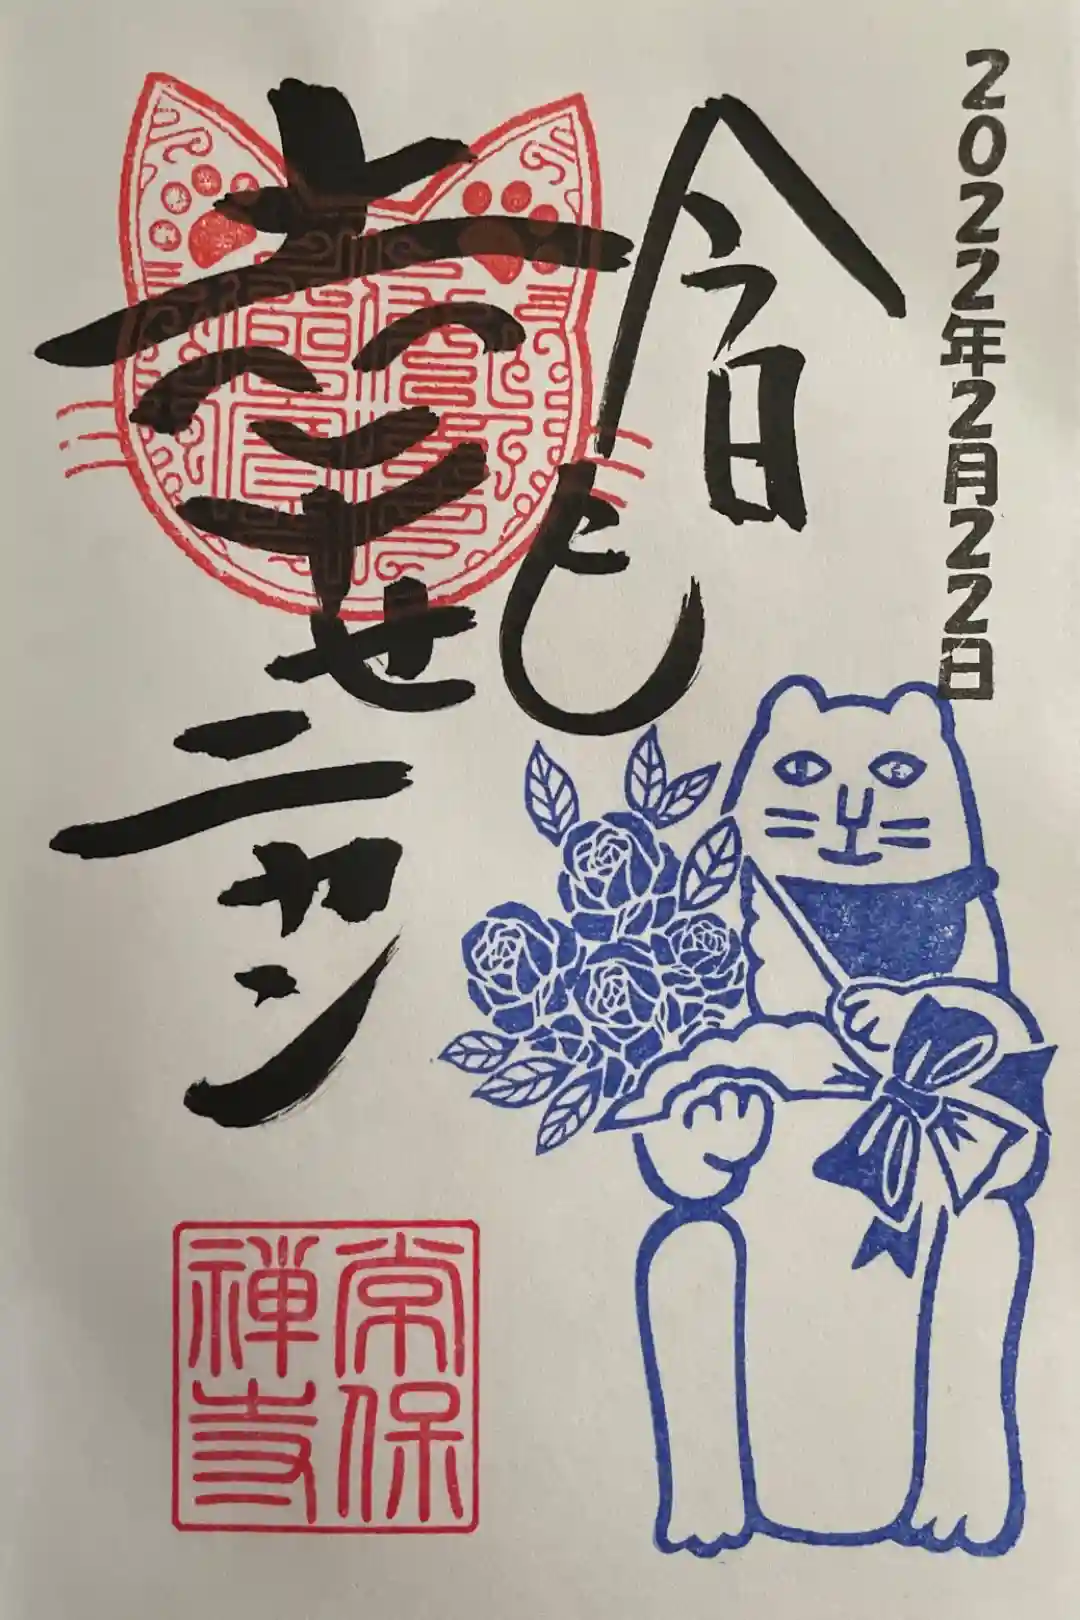 2022年2月22日
今日も
幸せニャン
常保
禅寺